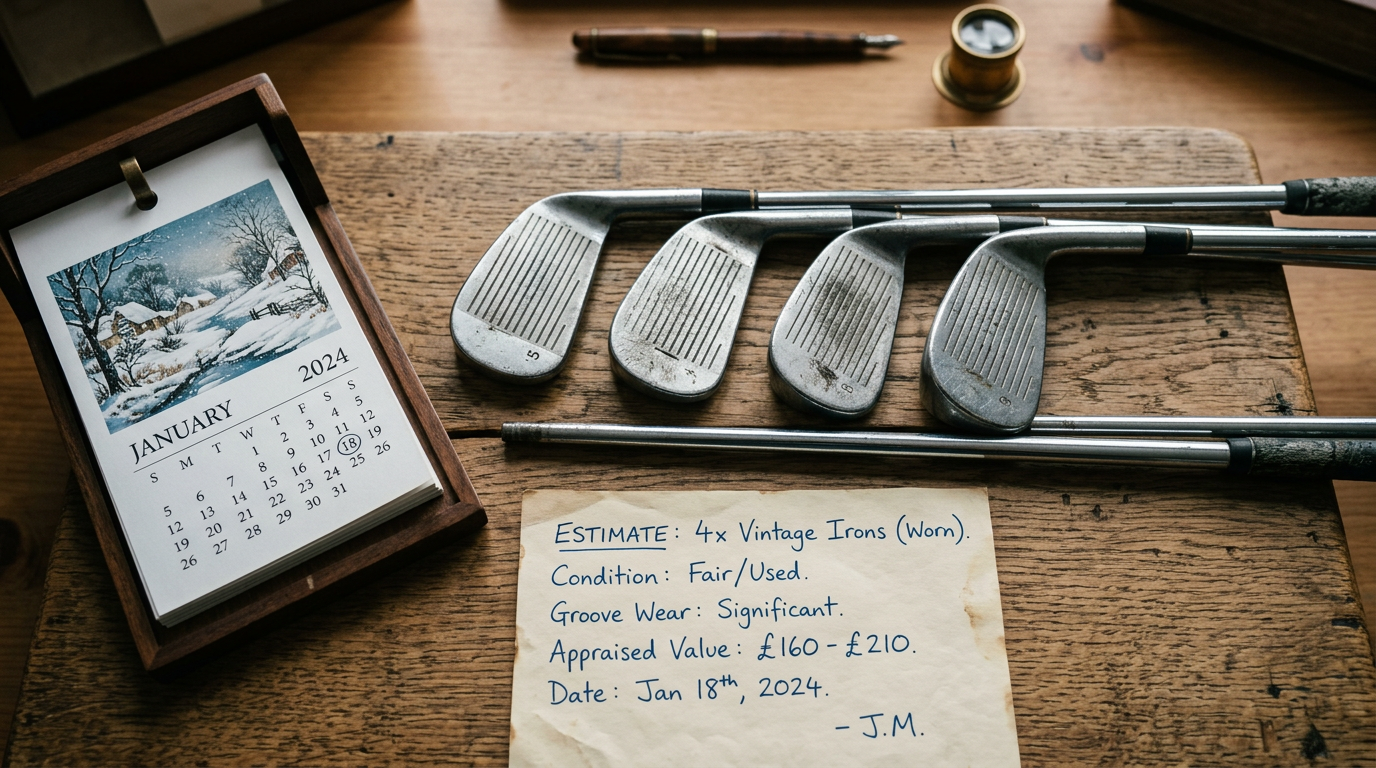 2024
JANUARY
S M T W T F S S
1 2 3 4 5
6 7 8 9 10 11 12
5 12 13 14 15 16 17 18 19
19 20 21 22 23 24 25 26
26 27 28 29 30 31
5
4
8
ESTIMATE: 4x Vintage Irons (Worn).
Condition: Fair/Used.
Groove Wear: Significant.
Appraised Value: £160 - £210.
Date: Jan 18th, 2024.
- J.M.